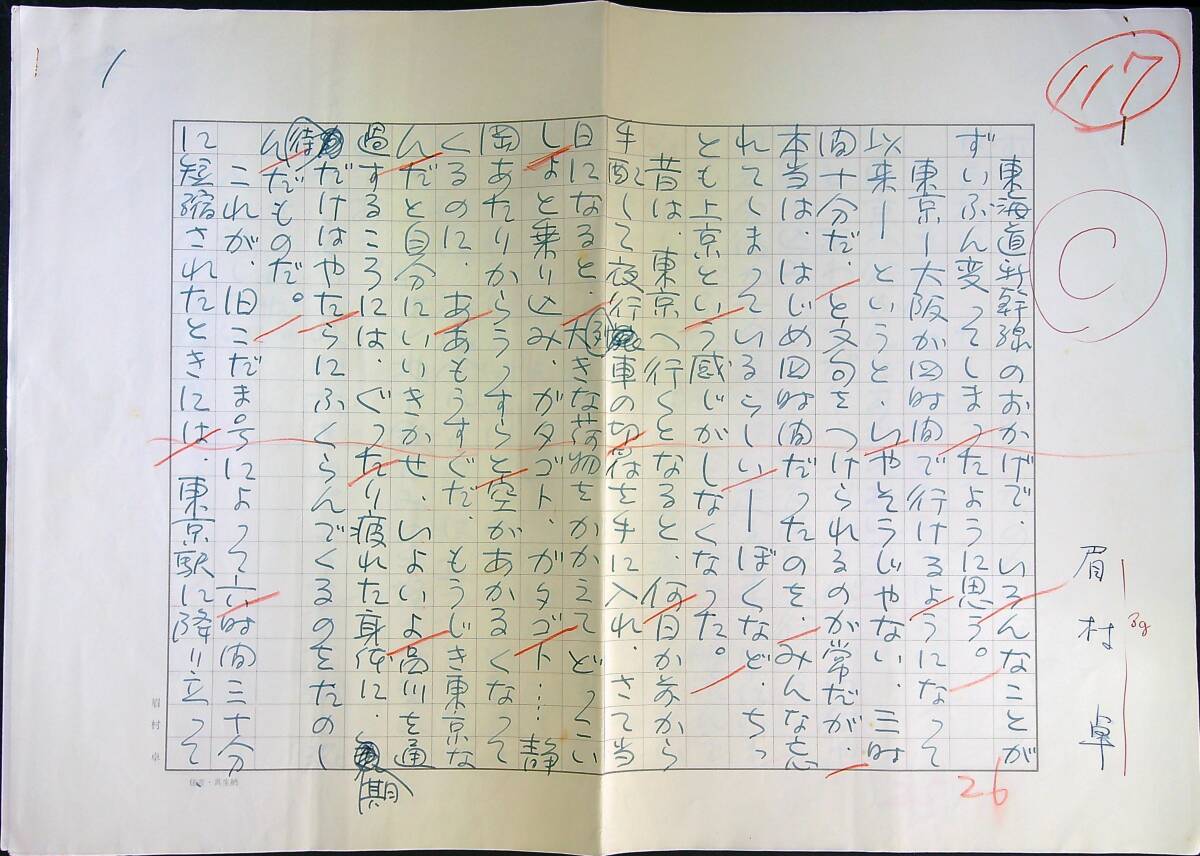 117
C
1
眉村 卓
38
26
東海道新幹線のおかげで、いろんなことが
ずいぶん変ってしまったように思う。
東京ー大阪が四時間で行けるようになって
以来ーというと、いやそうじゃない、三時
間十分だ、と文句をつけられるのが常だが、
本当は、はじめ四時間だったのを、みんな忘
れてしまっているらしいーぼくなど、ちっ
とも上京という感じがしなくなった。
昔は、東京へ行くとなると、何日か前から
手配して夜行車の切符を手に入れ、さて当
日になると、大きな荷物をかかえてどっこい
しょと乗り込み、ガタゴト、ガタゴト……静
岡あたりからうっすらと空があかるくなって
くるのに、ああもうすぐだ、もうじき東京な
んだと自分にいいきかせ、いよいよ品川を通
過するころには、ぐったり疲れた身体に、期
待だけはやたらにふくらんでくるのをたのし
んだものだ。
これが、旧こだま号によって六時間三十分
に短縮されたときには、東京駅に降り立って
眉村卓